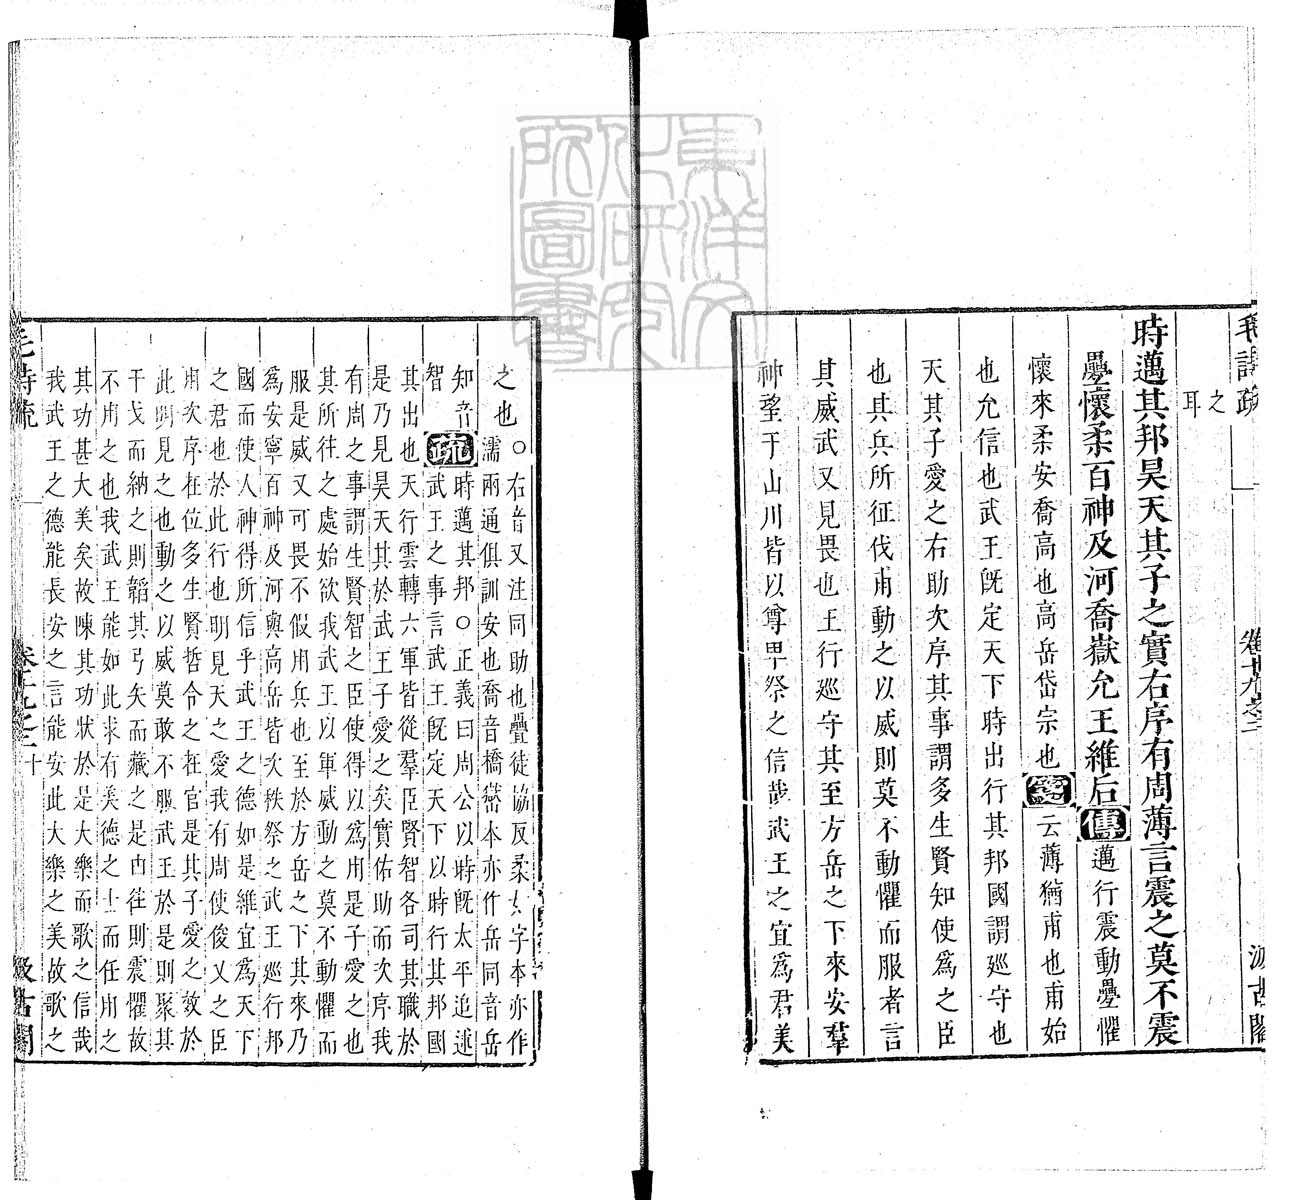 毛詩疏 卷十九之二 汲古閣
之
耳
時邁其邦昊天其子之實右序有周薄言震之莫不震
疊懷柔百神及河喬嶽允王維后傳邁行震動疊懼
懷來柔安喬高也高岳岱宗也箋云薄猶甫也甫始
也允信也武王旣定天下時出行其邦國謂巡守也
天其子愛之右助次序其事謂多生賢知使爲之臣
也其兵所征伐甫動之以威則莫不動懼而服者言
其威武又見畏也王行巡守其至方岳之下來安羣
神望于山川皆以尊卑祭之信哉武王之宜爲君美
之也○右音又注同助也疊徒協反柔如字本亦作
濡兩通俱訓安也喬音橋嶽本亦作岳同音岳
知音
智
疏時邁其邦○正義曰周公以時旣太平追述
武王之事言武王旣定天下以時行其邦國
其出也天行雲轉六軍皆從羣臣賢智各司其職於
是乃見昊天其於武王子愛之矣實佑助而次序我
有周之事謂生賢智之臣使得以爲用是子愛之也
其所往之處始欲我武王以軍威動之莫不動懼而
服是威又可畏不假用兵也至於方岳之下其來乃
爲安寧百神及河與高岳皆次秩祭之武王巡行邦
國而使人神得所信乎武王之德如是維宜爲天下
之君也於此行也明見天之愛我有周使俊乂之臣
用次序在位多生賢哲令之在官是其子愛之效於
此明見之也動之以威莫敢不服武王於是則聚其
干戈而納之則韜其弓矢而藏之是由往則震懼故
不用之也我武王能如此求有美德之士而任用之
其功甚大美矣故陳其功狀於是大樂而歌之信哉
我武王之德能長安之言能安此大樂之美故歌之
毛詩疏 卷十九之二 十 汲古閣
東洋文化研究所圖書